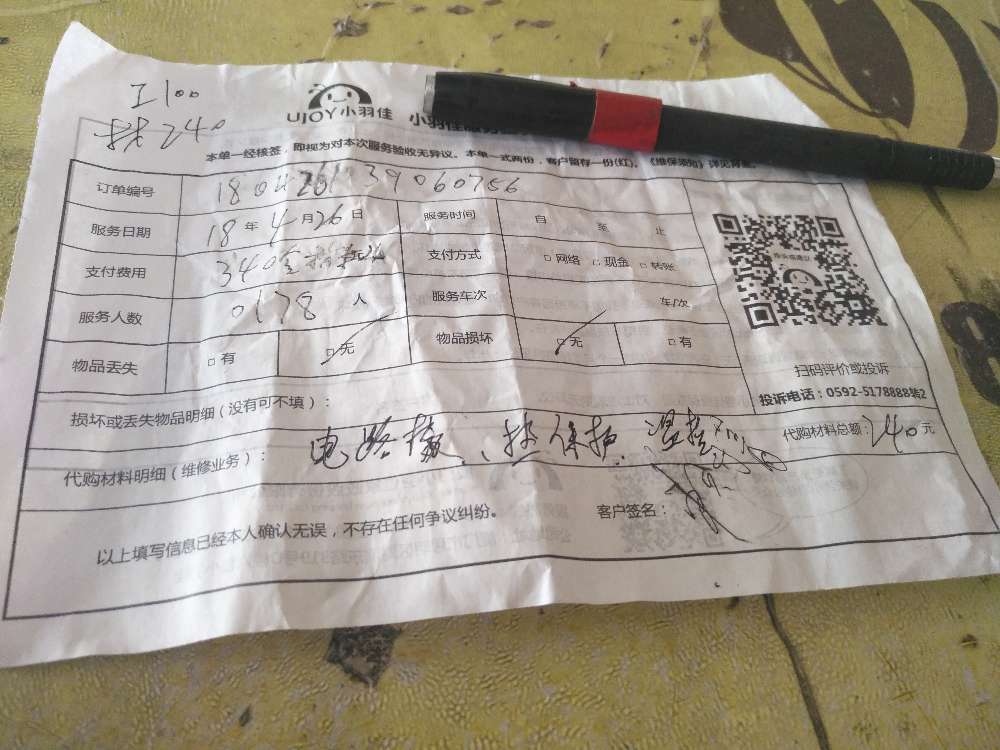 工100
材240
UJOY小羽佳 小羽佳服务
本单一经核签，即视为对本次服务验收无异议。本单一式两份，客户留存一份(红)。《维保须知》详见背面
订单编号 18042613 39060756
服务日期 18年4月26日 服务时间 自 至 止
支付费用 340 支付方式 □网络 □现金 □转账
服务人数 0178人 服务车次 车/次
物品丢失 □有 □无 物品损坏 □无 □有
扫码评价或投诉
投诉电话：0592-5178888转2
损坏或丢失物品明细(没有可不填)：
代购材料明细(维修业务)： 电路板、热保护、温控 代购材料总额：240元
以上填写信息已经本人确认无误，不存在任何争议纠纷。 客户签名：